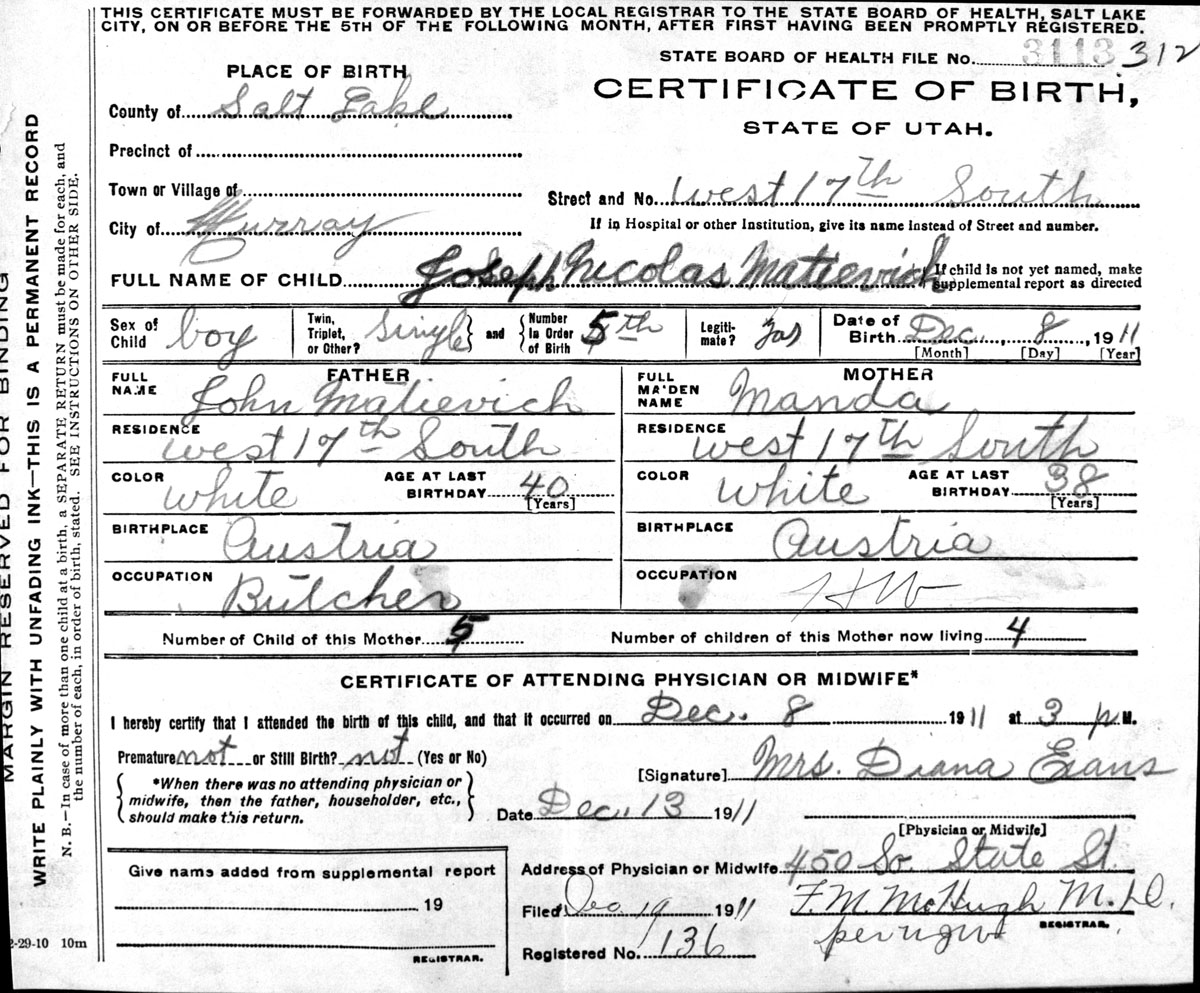 THIS CERTIFICATE MUST BE FORWARDED BY THE LOCAL REGISTRAR TO THE STATE BOARD OF HEALTH, SALT LAKE
CITY, ON OR BEFORE THE 5TH OF THE FOLLOWING MONTH, AFTER FIRST HAVING BEEN PROMPTLY REGISTERED.
STATE BOARD OF HEALTH FILE No. 3113 312
PLACE OF BIRTH
CERTIFICATE OF BIRTH,
STATE OF UTAH.
County of Salt Lake
Precinct of
Town or Village of
Street and No. West 17th South
City of Murray
If in Hospital or other Institution, give its name instead of Street and number.
FULL NAME OF CHILD Joseph Nicolas Matievich
If child is not yet named, make
supplemental report as directed
Sex of Child boy
Twin, Triplet, or Other? Single and
Number in Order of Birth 5th
Legiti- mate? yas
Date of Birth Dec. 8, 1911
[Month] [Day] [Year]
FATHER
FULL NAME John Matievich
RESIDENCE West 17th South
COLOR white
AGE AT LAST BIRTHDAY 40
[Years]
BIRTHPLACE Austria
OCCUPATION Butcher
MOTHER
FULL MAIDEN NAME Manda
RESIDENCE West 17th South
COLOR white
AGE AT LAST BIRTHDAY 38
[Years]
BIRTHPLACE Austria
OCCUPATION HW
Number of Child of this Mother 5
Number of children of this Mother now living 4
CERTIFICATE OF ATTENDING PHYSICIAN OR MIDWIFE*
I hereby certify that I attended the birth of this child, and that it occurred on Dec. 8 1911 at 3 p M.
Premature not or Still Birth? not (Yes or No)
*When there was no attending physician or
midwife, then the father, householder, etc.,
should make this return.
[Signature] Mrs. Diana Evans
Date Dec. 13 1911
[Physician or Midwife]
Address of Physician or Midwife 450 So. State St.
Filed Dec 19 1911
F. M. McHugh M.D.
per
REGISTRAR.
Registered No. 136
Give name added from supplemental report
19
REGISTRAR.
2-29-10 10m
MARGIN RESERVED FOR BINDING
WRITE PLAINLY WITH UNFADING INK—THIS IS A PERMANENT RECORD
N. B.—In case of more than one child at a birth, a SEPARATE RETURN must be made for each, and
the number of each, in order of birth, stated. SEE INSTRUCTIONS ON OTHER SIDE.